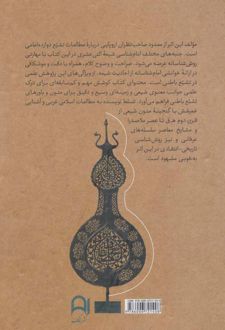 مؤلف این اثر از معدود صاحب‌نظران اروپایی دربارهٔ مطالعات تشیع دوازده‌امامی
است. جنبه‌های مختلف امام‌شناسی شیعهٔ اثنی‌عشری در این کتاب با مهارتی
روش‌شناسانه عرضه می‌شود. صراحت و وضوح کلام، همراه با دقت و موشکافی
در ارائهٔ خوانشی امام‌شناسانه از احادیث شیعه، از ویژگی‌های این پژوهش علمی
در تشیع باطنی است. محتوای کتاب کوشش مهم و کم‌سابقه‌ای برای درک
علمی جوانب معنوی شیعی و زمینه‌ای وسیع و دقیق برای متون و باورهای
تشیع باطنی فراهم می‌آورد. تسلط نویسنده به مطالعات اسلامی غربی و آشنایی
عمیقش با گنجینهٔ مدون شیعی از
قرن دوم هـ.ق تا عصر ملاصدرا
و مشایخ معاصر سلسله‌های
عرفانی و نیز روش‌شناسی
تاریخی-انتقادی در این اثر
به‌خوبی مشهود است.